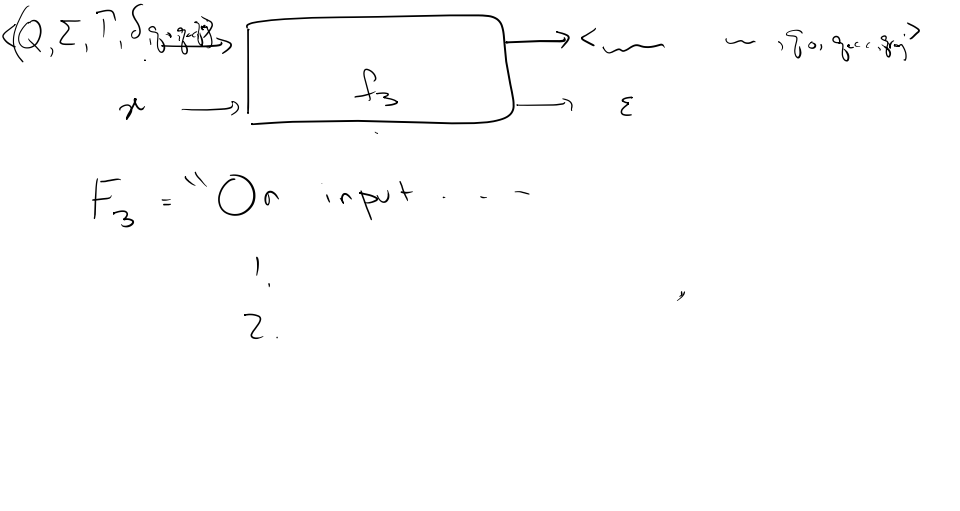 <Q, Σ, Γ, δ, q₀, qacc, qrej> → f₃ → < ~~~ ~ , q₀, qacc, qrej>
x → → ε
F₃ = "On input . . -
1.
2.